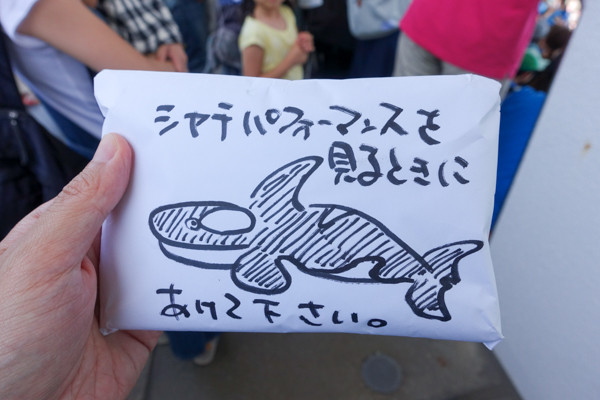 シャチパフォーマンスを
見るときに
あけて下さい。